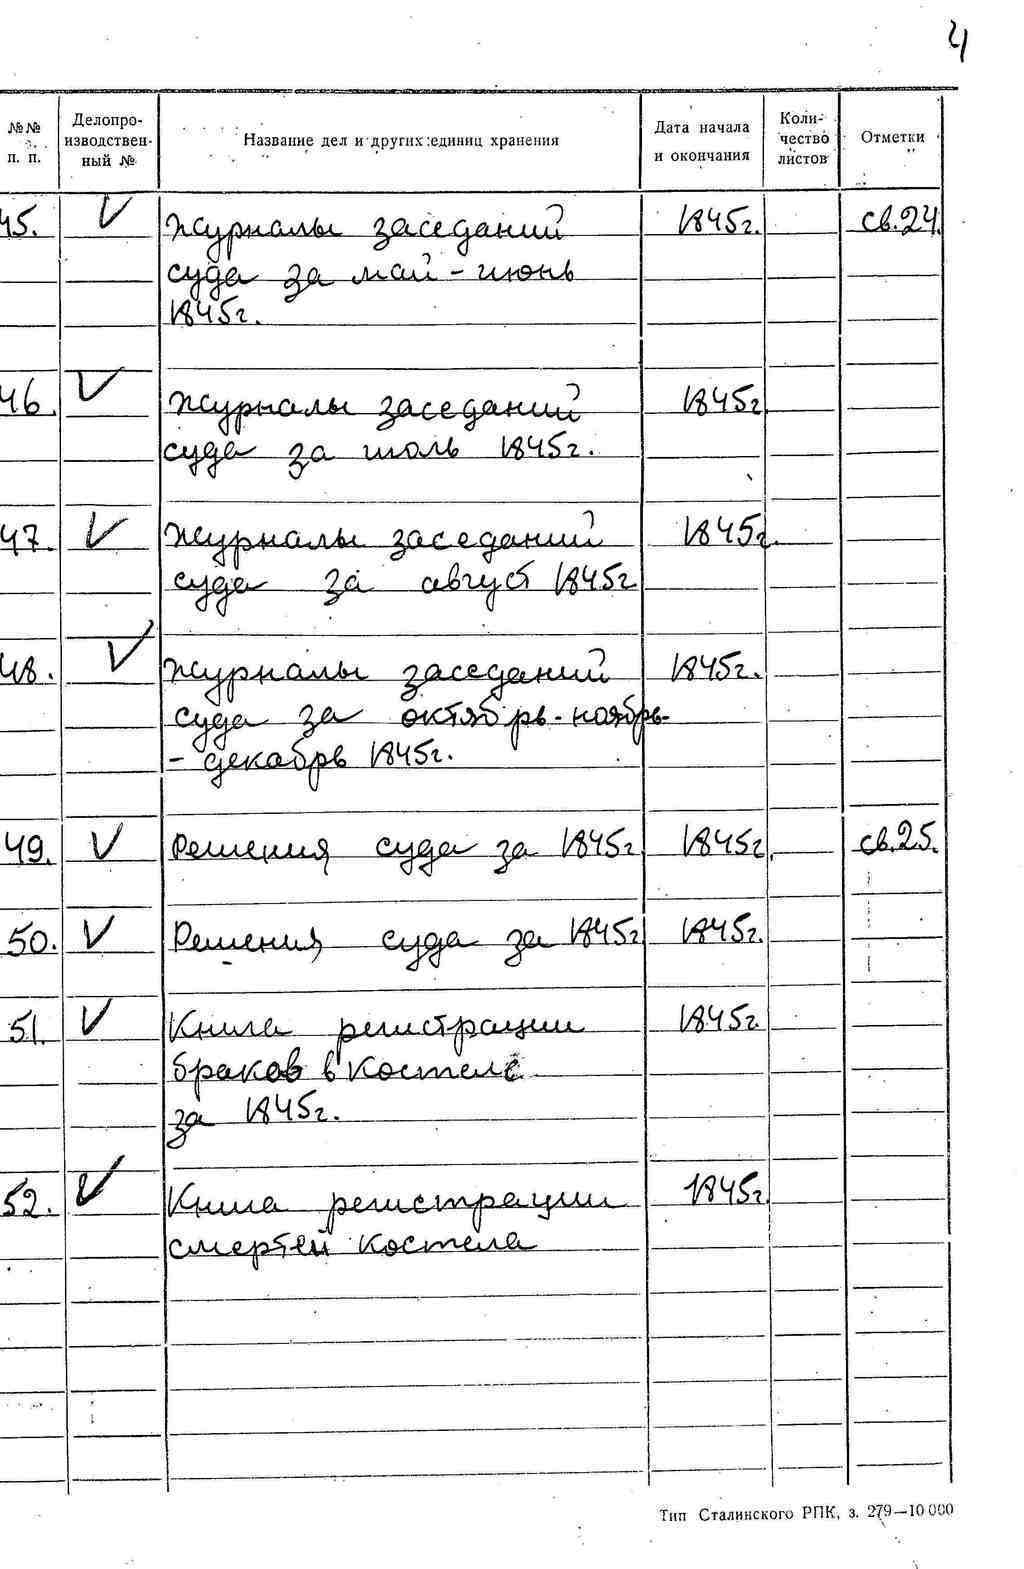 21
№№ п. п. Делопроизводственный № Название дел и других единиц хранения Дата начала и окончания Количество листов Отметки
45. V Журналы заседаний 1845г. св.24.
суда за май - июнь
1845г.
46. V Журналы заседаний 1845г
суда за июль 1845г.
47. V Журналы заседаний 1845г.
суда за август 1845г
48. V Журналы заседаний 1845г.
суда за октябрь - ноябрь-
- декабрь 1845г.
49. V Решения суда за 1845г. 1845г. св.25.
50. V Решения суда за 1845г 1845г.
51. V Книга регистрации 1845г.
браков в Костеле
за 1845г.
52. V Книга регистрации 1845г.
смертей Костела
Тип Сталинского РПК, з. 279—10 000